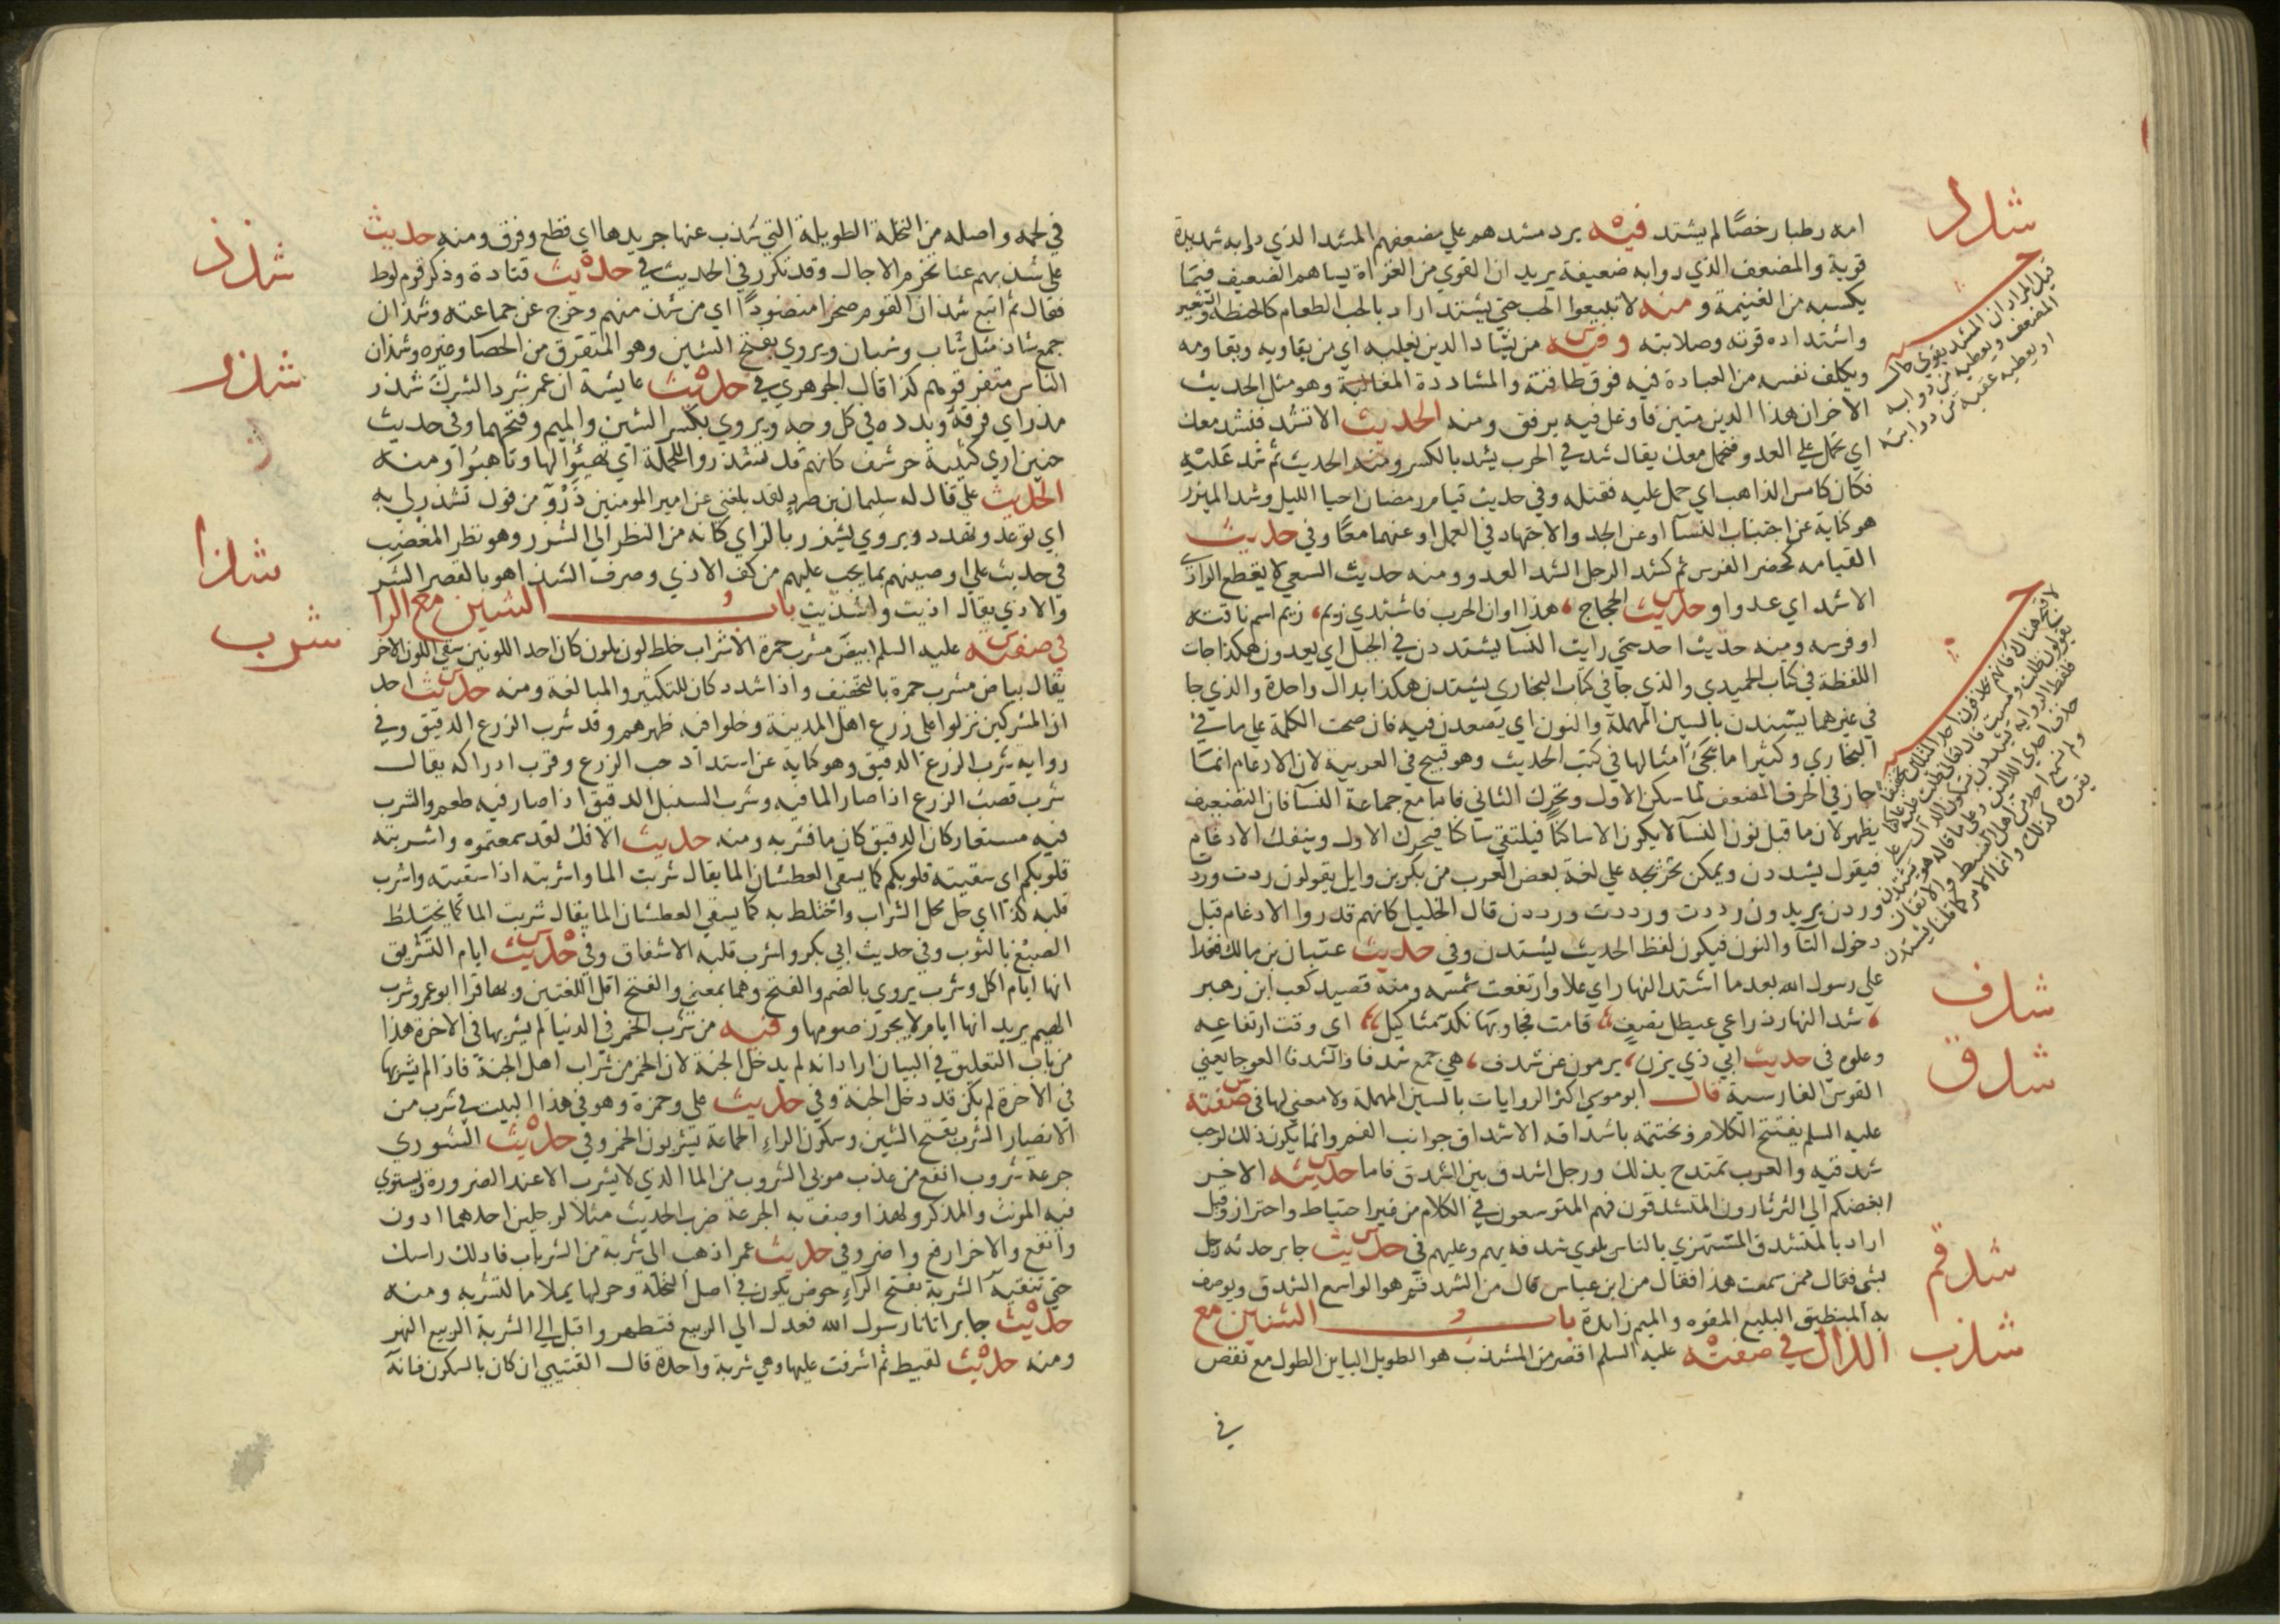 شدد
امه رطبا رخصًا لم يشتد فيه يرد مشدهم علي مضعفهم المشد الذي دوابه شديدة
قوية والمضعف الذي دوابه ضعيفة يريد ان القوي من الغزاة يساهم الضعيف فيما
يكسبه من الغنيمة ومنه لا تبيعوا الحب حتي يشتد اراد بالحب الطعام كالحنطة والشعير
واشتداده قوته وصلابته وفيه من يشاد الدين يغلبه اي من يقاويه ويقاومه
ويكلف نفسه من العبادة فيه فوق طاقته والمشاددة المغالبة وهو مثل الحديث
الاخر ان هذا الدين متين فاوغل فيه برفق ومنه الحديث الا تشد فنشد معك
اي تحمل علي العدو فنحمل معك يقال شد في الحرب يشد بالكسر ومنه الحديث ثم شد عليه
فكان كامس الذاهب اي حمل عليه فقتله وفي حديث قيام رمضان احيا الليل وشد الميزر
هو كناية عن اجتناب النسآ او عن الجد والاجتهاد في العمل او عنهما معًا وفي حديث
القيامه كحضر الفرس ثم كشد الرجل الشد العدو ومنه حديث السعي لا يقطع الوادي
الا شد اي عدوا وحديث الحجاج هذا اوان الحرب فاشتدي زيم زيم اسم ناقته
او فرسه ومنه حديث احد حتي رايت النسا يشتددن في الجبل اي يعدون هكذا جات
اللفظة في كتاب الحميدي والذي جا في كتاب البخاري يشتدن هكذا بدال واحدة والذي جا
في غيرهما يسندن بالسين المهملة والنون اي يصعدن فيه فان صحت الكلمة علي ما في
البخاري وكثيرا ما يجئ امثالها في كتب الحديث وهو قبيح في العربية لان الادغام انما
جاز في الحرف المضعف لما سكن الاول وتحرك الثاني فاما مع جماعة النسآ فان التضعيف
يظهر لان ما قبل نون النسآ لا يكون الا ساكنا فيلتقي ساكنا فيحرك الاول وينفك الادغام
فيقول يشتددن ويمكن تخريجه علي لغة بعض العرب من بكر بن وايل يقولون ردت وردت
وردن يريدون رددت ورددت ورددن قال الخليل كانهم قدروا الادغام قبل
دخول التآ والنون فيكون لفظ الحديث يشتدن وفي حديث عتبان بن مالك فغدا
علي رسول الله بعدما اشتد النهار اي علا وارتفعت شمسه ومنه قصيد كعب ابن زهير
شد النهار ذراعي عيطل نصف قامت فجاوبها نكد مثاكيل اي وقت ارتفاعه
شدف
وعلوه في حديث ابي ذي يزن يرمون عن شدف هي جمع شدفا والشدفا العوجا يعني
القوس الفارسية قال ابو موسي اكثر الروايات بالسين المهملة ولا معني لها في صفته
شدق
عليه السلم يفتتح الكلام ويختتمه باشداقه الاشداق جوانب الفم وانما يكون ذلك لرحب
شدقيه والعرب تمتدح بذلك ورجل اشدق بين الشدق فاما حديثه الاخر
ابغضكم الي الثرثارون المتشدقون فهم المتوسعون في الكلام من غير احتياط واحتراز وقيل
اراد بالمتشدق المستهزي بالناس يلوي شدقه بهم وعليهم في حديث جابر حدثه رجل
شدقم
بشي فقال ممن سمعت هذا فقال من ابن عباس قال من الشدقم هو الواسع الشدق ويوصف
به المنطيق البليغ المفوه والميم زايدة باب الشين مع
شذب
الذال في صفته عليه السلم اقصر من المشذب هو الطويل الباين الطول مع نقص
في
قيل المراد ان المشد يقوي حال
المضعف ويعطيه من دوابه
او يعطيه عقبة من دوابه
في لحمه واصله من النخلة الطويلة التي شذب عنها جريدها اي قطع وفرق ومنه حديث
علي شذبهم عنا تخرم الاجال وقد تكرر في الحديث في حديث قتادة وذكر قوم لوط
شذذ
فقال ثم اتبع شذان القوم صخرا منضودًا اي من شذ منهم وخرج عن جماعته وشذان
جمع شاذ مثل شاب وشبان ويروي بفتح الشين وهو المتفرق من الحصا وغيره وشذان
الناس متفرقوهم كذا قال الجوهري في حديث عايشة ان عمر شرد الشرك شذر
شذر
مذر اي فرقه وبدده في كل وجه ويروي بكسر الشين والميم وفتحهما وفي حديث
حنين اري كتيبة حرشف كانهم قد تشذروا للحملة اي تهيئوا لها وتاهبوا ومنه
الحديث علي قال له سليمان بن صرد لقد بلغني عن امير المومنين ذروٌ من قول تشذر لي به
اي توعد وتهدد ويروي تشزر بالزاي كانه من النظر الي الشزر وهو نظر المغضب
شذا
في حديث علي اوصيتهم بما يجب عليهم من كف الاذي وصرف الشذا هو بالقصر الشر
والاذي يقال اذيت واشذيت باب الشين مع الرا
شرب
في صفته عليه السلم ابيض مشرب حمرة الاشراب خلط لون بلون كان احد اللونين سقي اللون الاخر
يقال بياض مشرب حمرة بالتخفيف واذا شدد كان للتكثير والمبالغة ومنه حديث احد
ان المشركين نزلوا علي زرع اهل المدينة وخلوا فيه ظهرهم وقد شرب الزرع الدقيق وفي
رواية شرب الزرع الدقيق وهو كناية عن اشتداد حب الزرع وقرب ادراكه يقال
شرب قصب الزرع اذا صار الما فيه وشرب السنبل الدقيق اذا صار فيه طعم والشرب
فيه مستعار كان الدقيق كان ما فشربه ومنه حديث الافك لقد سمعتموه واشربته
قلوبكم اي سقيته قلوبكم كما يسقي العطشان الما يقال شربت الما واشربته اذا سقيته واشرب
قلبه كذا اي حل محل الشراب واختلط به كما يسقي العطشان الما يقال شربت الما كما يختلط
الصبغ بالثوب وفي حديث ابي بكر واشرب قلبه الاشفاق وفي حديث ايام التشريق
انها ايام اكل وشرب يروي بالضم والفتح وهما بمعني والفتح اقل اللغتين وبها قرا ابو عمرو شرب
الهيم يريد انها ايام لا يجوز صومها وفيه من شرب الخمر في الدنيا لم يشربها في الاخرة هذا
من باب التعليق في البيان اراد انه لم يدخل الجنة لان الخمر من شراب اهل الجنة فاذا لم يشربها
في الاخرة لم يكن قد دخل الجنة وفي حديث علي وحمزة وهو في هذا البيت في شرب من
الانصار الشرب بفتح الشين وسكون الراء الجماعة يشربون الخمر وفي حديث الشوري
جرعة شروب انفع من عذب موبي الشروب من الما الذي لا يشرب الا عند الضرورة ويستوي
فيه المونث والمذكر ولهذا وصف به الجرعة ضرب الحديث مثلا لرجلين احدهما ادون
وانفع والاخر ارفع واضر وفي حديث عمر اذهب الي شربة من الشربات فادلك راسك
حتي تنقيه الشربة بفتح الراء حوض يكون في اصل النخلة وحولها يملا ما لتشربه ومنه
حديث جابر اتانا رسول الله فعدل الي الربيع فتطهر واقبل الي الشربة الربيع النهر
ومنه حديث لقيط ثم اشرفت عليها وهي شربة واحدة قال القتيبي ان كان بالسكون فانه